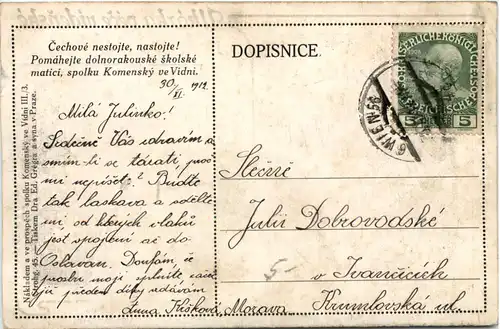 Čechové nestojte, nastojte!
Pomáhejte dolnorakouské školské
matici, spolku Komenský ve Vídni.
DOPISNICE.
30/XI. 1912
Milá Julinko!
Srdečně Vás zdravím a
smím-li se tázati, proč
mi nepíšet? Buďte
tak laskava a sdělte
mi, od kterých vlaků
jest spojení až do
Oslavan. Doufám, že
prosbu moji splníte, začež
již předem díky vzdávám
Anna Křížková
Slečně
Julii Dobrovodské
v Ivančicích
Krumlovská ul.
Morava.
5-
6 WIEN 56
KAISERLICHE KÖNIGLICHE ÖSTERREICHISCHE POST
5 5
Nákladem a ve prospěch spolku Komenský ve Vídni III./3.
45. Tiskem Dra Ed. Grégra a syna v Praze.